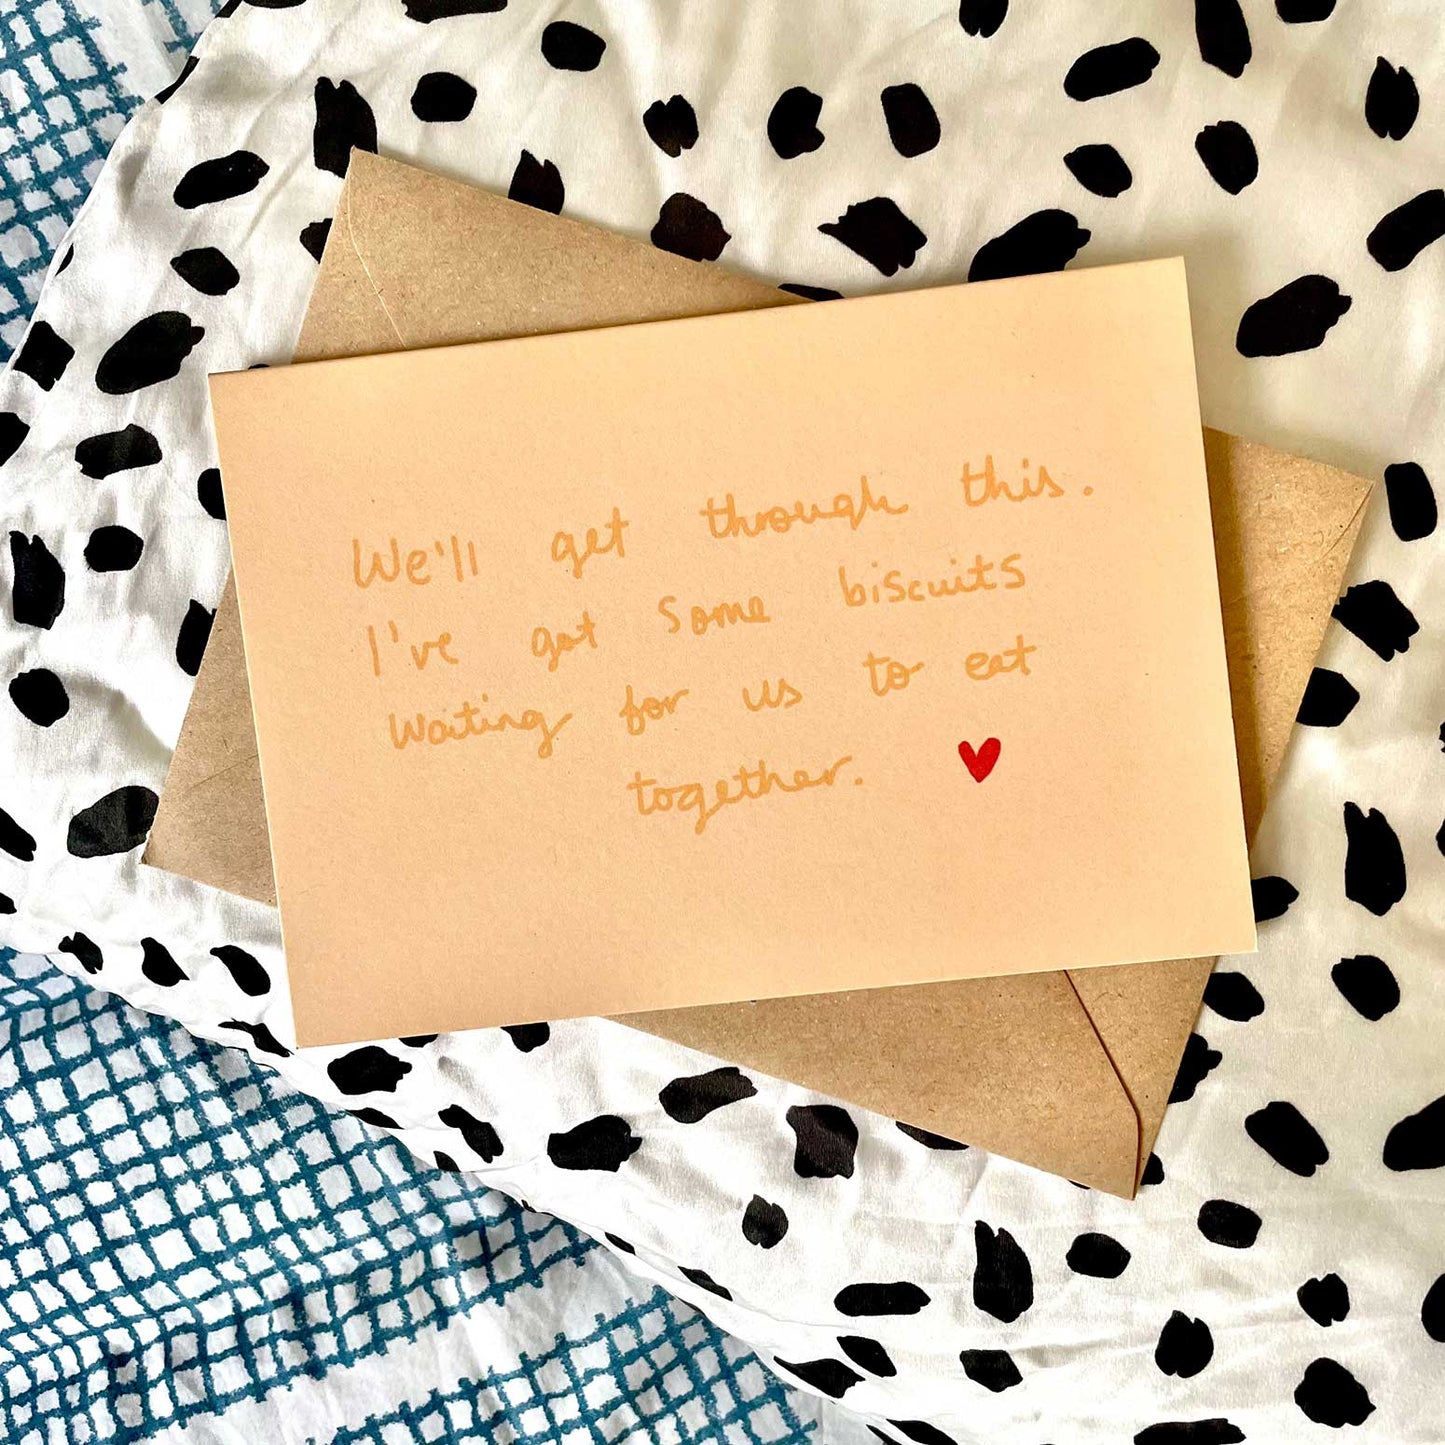 We'll get through this.
I've got some biscuits
waiting for us to eat
together.